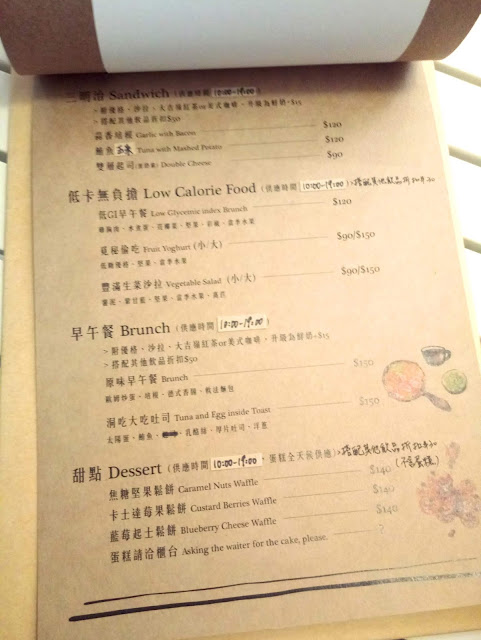 三明治 Sandwich (供應時間 10:00-19:00)
> 附優格、沙拉、大吉嶺紅茶or美式咖啡，升級為鮮奶+$15
> 搭配其他飲品折扣$50
蒜香培根 Garlic with Bacon $120
鮪魚 Tuna with Mashed Potato $120
雙層起司 Double Cheese $90
低卡無負擔 Low Calorie Food (供應時間 10:00-19:00) >搭配其他飲品折扣
低GI早午餐 Low Glycemic index Brunch $120
雞胸肉、水煮蛋、花椰菜、堅果、彩椒、當季水果
覓秘偷吃 Fruit Yoghurt (小/大) $90/$150
低糖優格、堅果、當季水果
豐滿生菜沙拉 Vegetable Salad (小/大) $90/$150
薯泥、紫甘藍、堅果、當季水果、萵苣
早午餐 Brunch (供應時間 10:00-19:00)
> 附優格、沙拉、大吉嶺紅茶or美式咖啡，升級為鮮奶+$15
> 搭配其他飲品折扣$50
原味早午餐 Brunch $150
歐姆炒蛋、培根、德式香腸、軟法麵包
洞吃大吃吐司 Tuna and Egg inside Toast $150
太陽蛋、鮪魚、乳酪絲、厚片吐司、洋蔥
甜點 Dessert (供應時間 10:00-19:00，蛋糕全天侯供應) >搭配其他飲品折扣
(不含蛋糕)
焦糖堅果鬆餅 Caramel Nuts Waffle $140
卡士達莓果鬆餅 Custard Berries Waffle $140
藍莓起士鬆餅 Blueberry Cheese Waffle $140
蛋糕請洽櫃台 Asking the waiter for the cake, please. ?